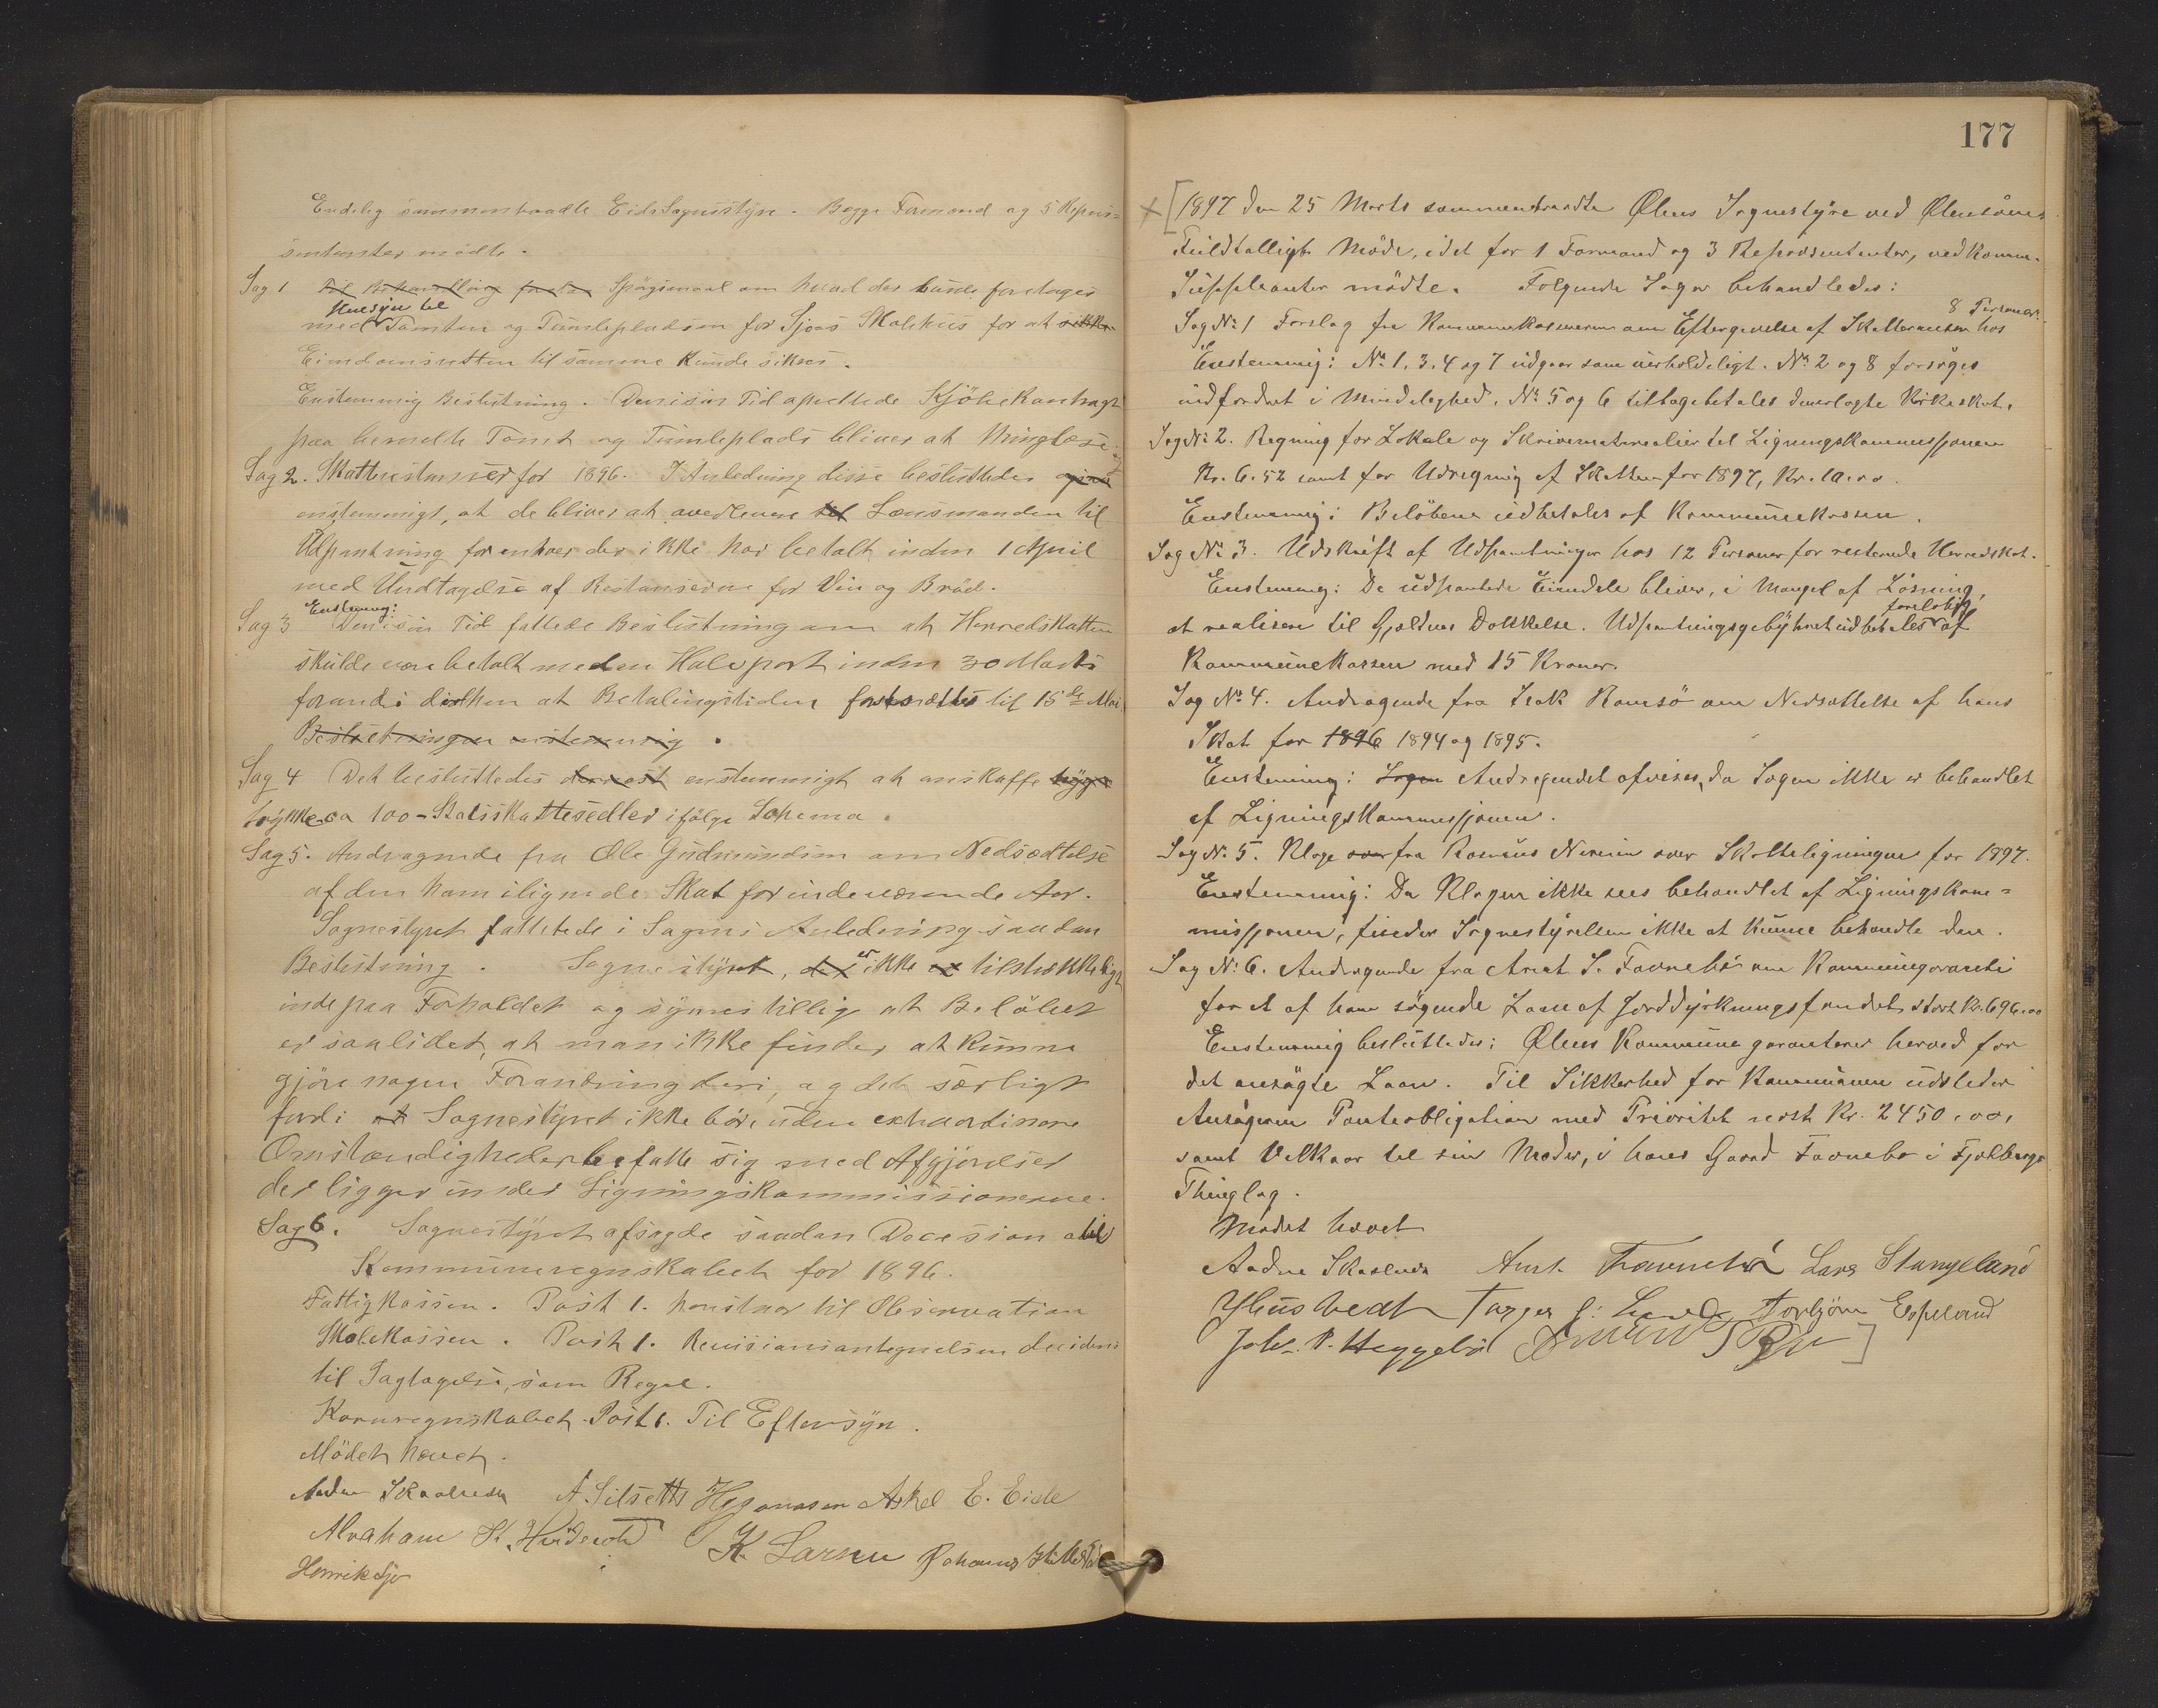 Endelig sammentraadte Eids Sognestyre. Begge Formænd og 5 Repræ-
sentanter mødte.
Sag 1 Til Behandling Spögsmaal om hvad der burde foretages
Hensyn til
med Tomten og Tumlepladsen for Sjoas Skolehus for at sikke
Eiendomsretten til samme kunde sikres.
Enstemmig Beslutning. Den i sin Tid oprettede Kjöbekontragt
paa bemeldte Tomt og Tumleplads bliver at thinglæse.
Sag 2. Skatterestanser for 1896. I Anledning disse besluttedes
enstemmigt, at de bliver at avedlevere til Lensmanden til
Udpantning for enhver der ikke har betalt inden 1 April
med Undtagelse af Restanserne for Vin og Bröd.
Enstemmig:
Sag 3 Den i sin Tid fattede Beslutning om at Herredskatten
skulde være betalt med en Halvpart inden 30 Marts
forandres derhen at Betalingstiden fortsættes til 15de Mai
Beslutningen enstemmig.
Sag 4 Det besluttedes dernest enstemmigt at anskaffe
trykke ca 100 - Statsskattesedler ifölge Schema.
Sag 5. Andragende fra Ole Gudmundsen om Nedsædtelse
af den ham ilignede Skat for indeværende Aar.
Sognestyret fattede i Sagens Anledning saadan
Beslutning. Sognestyret, der er ikke tilstrækkeligt
inde paa Forholdet og synes tillig at Belöbet
er saalidet, at man ikke finder at kunne
gjöre nogen Forandring deri, og det særligt
fordi at Sognestyret ikke bör, uden extraordinære
Omstændigheder befatte sig med Afgjörelser
der ligger under Ligningskommissionerne.
Sag 6. Sognestyret afsagde saadan Decesion
Kommuneregnskabet for 1896.
Fattigkassen. Post 1. henstaar til Observation
Skolekassen. Post 1. Revisionsantegnelsen decideres
til Iagtagelse, som Regel.
Kornregnskabet. Post 1. Til Eftersyn.
Mödet hævet.
Aadne Skaalnes A. Silseth Askel E. Eide
Abraham K. Larsen Johannes
Henrik Sjo
177
[1897 den 25 Marts sammentraadte Ølens Sognestyre ved Ølensöen
Fuldtalligt Möde, idet for 1 Formand og 3 Repræsentanter, vedkomm.
Suppleanter mödte. Fölgende Sager behandledes:
8 Personer.
Sag No 1 Forslag fra Kommunekassereren om Eftergivelse af Skatteranser hos
Enstemmig: No 1. 3. 4 og 7 udgaar som uerholdeligt. No 2 og 8 forsöges
indfordret i Mindelighed. No 5 og 6 tilbagebetales den erlagte Kirkeskat.
Sag No 2. Regning for Lokale og Skrivematerialier til Ligningskommissjonen
Kr. 6.52 samt for Udregning af Skatten for 1897, Kr. 10.00.
Enstemmig: Belöbene udbetales af Kommunekassen.
Sag No 3. Udskrift af Udpantninger hos 12 Personer for resterende Herredskat.
Enstemmig: De udpantede Eiendele bliver, i Mangel af Lösning,
foreløbig
at realisere til Gjældens Dækkelse. Udpantningsgebyhret udbetales af
Kommunekassen med 15 Kroner.
Sag No 4. Andragende fra Isak Ramsö om Nedsættelse af hans
Skat for 1896 1894 og 1895.
Enstemmig: Sagen Andragendet afvises, da Sagen ikke er behandlet
af Ligningskommissjonen.
Sag No. 5. Klage over fra Rasmus over Skatteligningen for 1897.
Enstemmig: Da Klagen ikke sees behandlet af Ligningskom=
missjonen, finder Sognestyrelsen ikke at kunne behandle den.
Sag No: 6. Andragende fra Arnt S. Favnebö om Kommunegaranti
for et af ham sögende Laan af Jorddyrkningsfondet stort Kr. 696.00
Enstemmig besluttedes: Ølens Kommune garanterer herved for
det ansögte Laan. Til Sikkerhed for Kommunen udsteder
Ansögeren Panteobligation med Prioritet næst Kr. 2450.00,
samt Velkaar til sin Moder, i hans Gaard Favnebø i Fjelbergs
Thinglag.
Mødet hævet
Aadne Skaalnes Arnt. Favnebö Lars Stangeland
Torbjörn Espeland
Joh. P. Heggebö ]